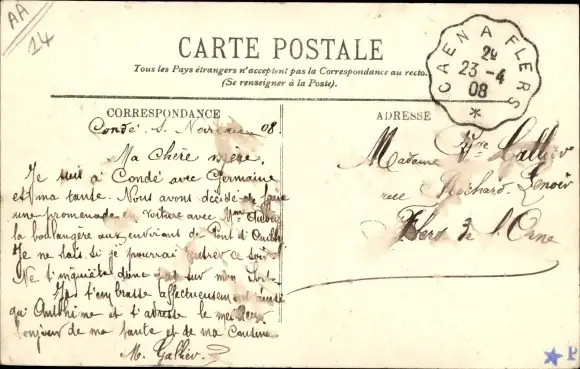 AA
14
CARTE POSTALE
Tous les Pays étrangers n'acceptent pas la Correspondance au recto
(Se renseigner à la Poste).
CAEN A FLERS
2e
23 -4
08
*
CORRESPONDANCE
ADRESSE
Condé S. Noireau 08.
Ma chère mère,
Je suis à Condé avec Germaine
et ma tante. Nous avons décidé de faire
une promenade en voiture avec Mme
la boulangère aux environs de Pont d'
Je ne sais si je pourrai rentrer ce soir
Ne t'inquiète donc pas sur mon sort.
Je t'embrasse affectueusement ainsi
qui Anthime et t'adresse le meilleur
bonjour de ma tante et de ma Cousine
M. Gallier.
Madame Vve Gallier
rue Richard Lenoir
Flers de l'Orne
P